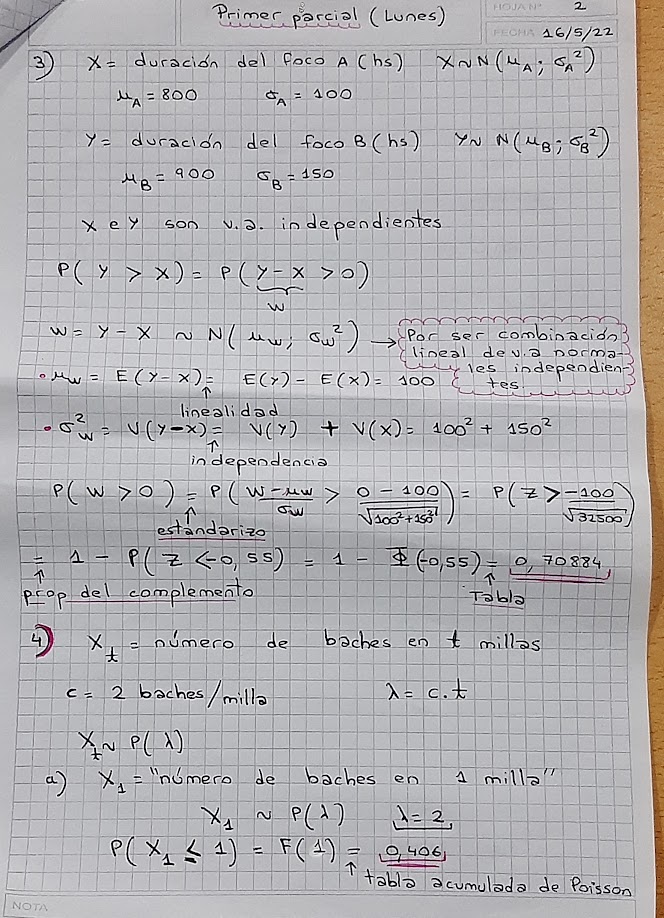 Primer parcial (Lunes)
HOJA Nº 2
FECHA 16/5/22
3) X = duración del foco A (hs) X ~ N(μ_A ; σ_A²)
μ_A = 800 σ_A = 100
Y = duración del foco B (hs) Y ~ N(μ_B ; σ_B²)
μ_B = 900 σ_B = 150
X e Y son v.a. independientes
P(Y > X) = P(Y - X > 0)
W
W = Y - X ~ N(μ_W ; σ_W²) → Por ser combinación
lineal de v.a norma-
les independien-
tes
• μ_W = E(Y-X) = E(Y) - E(X) = 100
↑
linealidad
• σ²_W = V(Y-X) = V(Y) + V(X) = 100² + 150²
↑
independencia
P(W > 0) = P(W-μ_W/σ_W > 0-100/√100²+150²) = P(Z > -100/√32500)
↑
estandarizo
= 1 - P(Z ≤ -0,55) = 1 - Φ(-0,55) = 0,70884
↑ ↑
prop del complemento Tabla
4) X_t = número de baches en t millas
c = 2 baches/milla λ = c.t
X_t ~ P(λ)
a) X_1 = "número de baches en 1 milla"
X_1 ~ P(λ) λ = 2
P(X_1 ≤ 1) = F(1) = 0,406
↑ tabla acumulada de Poisson
NOTA